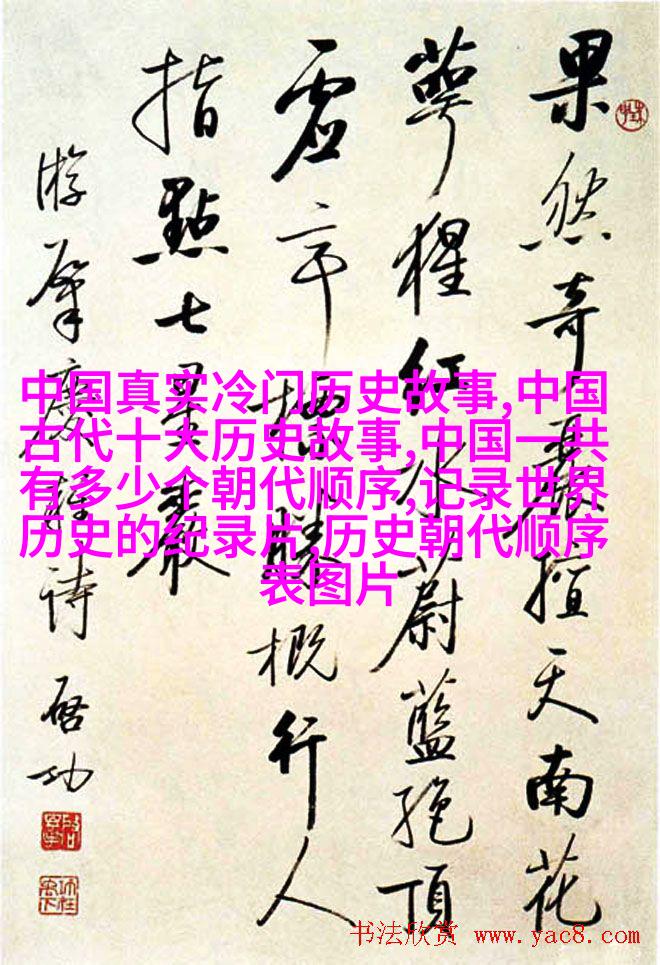 果然奇麗擅天南花
萼猩红水蔚藍絶頂
虚亭勝概行人
指點七星巖
游肇慶詩 启功
中国真实冷门历史故事,中国
古代十大历史故事,中国一共
有多少个朝代顺序,记录世界
历史的纪录片,历史朝代顺序
表图片
书法欣赏 www.yac8.com